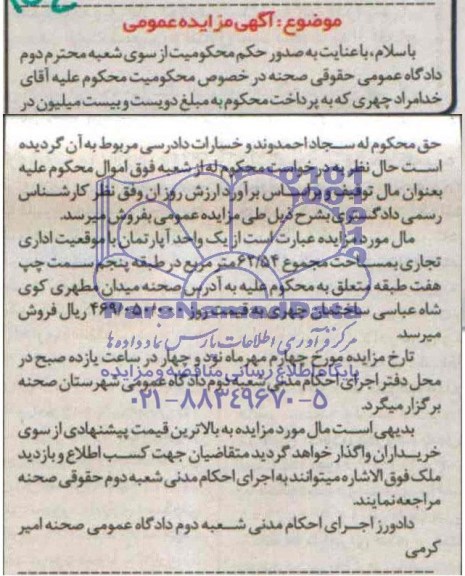 موضوع: آگهی مزایده عمومی
باسلام، باعنایت به صدور حکم محکومیت از سوی شعبه محترم دوم
دادگاه عمومی حقوقی صحنه در خصوص محکومیت محکوم علیه آقای
خدامراد چهری که به پرداخت محکوم به مبلغ دویست و بیست میلیون در
حق محکوم له سجاد احمدوند و خسارات دادرسی مربوط به آن گردیده
است حال نظر به درخواست محکوم له از شعبه فوق اموال محکوم علیه
بعنوان مال توقیف و براساس برآورد ارزش روز آن وفق نظر کارشناس
رسمی دادگستری بشرح ذیل طی مزایده عمومی بفروش میرسد.
مال مورد مزایده عبارت است از یک واحد آپارتمان با موقعیت اداری
تجاری بمساحت مجموع ۶۳/۵۴ متر مربع در طبقه پنجم سمت چپ
هفت طبقه متعلق به محکوم علیه به آدرس صحنه میدان مطهری کوی
شاه عباسی ساختمان چهری به قیمت روز ریال فروش
میرسد.
تارخ مزایده مورخ چهارم مهر ماه نود و چهار در ساعت یازده صبح در
محل دفتر اجرای احکام مدنی شعبه دوم دادگاه عمومی شهرستان صحنه
برگزار میگرد.
بدیهی است مال مورد مزایده به بالاترین قیمت پیشنهادی از سوی
خریداران واگذار خواهد گردید متقاضیان جهت کسب اطلاع و بازدید
ملک فوق الاشاره میتوانند به اجرای احکام مدنی شعبه دوم حقوقی صحنه
مراجعه نمایند.
دادورز اجرای احکام مدنی شعبه دوم دادگاه عمومی صحنه امیر
کرمی
ParsNamadData
مرکز فرآوری اطلاعات پارس نماد داده ها
پایگاه اطلاع رسانی مناقصه و مزایده
۰۲۱-۸۸۳۴۹۶۷۰-۵